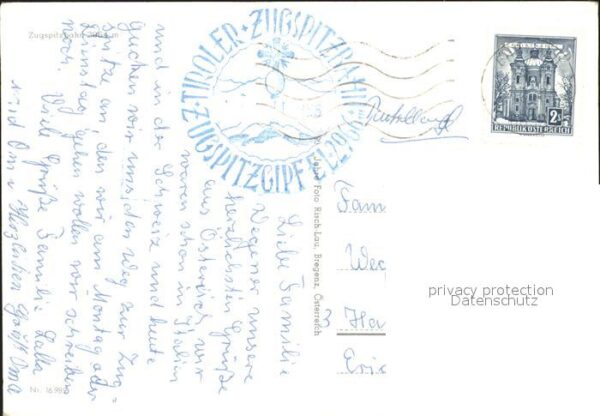 Zugspitzbahn 2964 m
TIROLER · ZUGSPITZBAHN
ZUGSPITZGIPFEL 2964
Deutschland
2 S
REPUBLIK ÖSTERREICH
Liebe Familie
Wegener unsere
herzlichsten Grüße
aus Österreich, wir
waren schon in Italien
und in der Schweiz und heute
gucken wir uns den Weg zur Zug-
spitze an, den wir am Montag oder
Dienstag gehen wollen wir schreiben
noch. Viele Grüße Familie Lalla
und Om u Herzlichen Gruß Oma
Foto Risch-Lau, Bregenz, Österreich
Fam
Weg
3 Ha
Eric
privacy protection
Datenschutz
Nr. 16 98